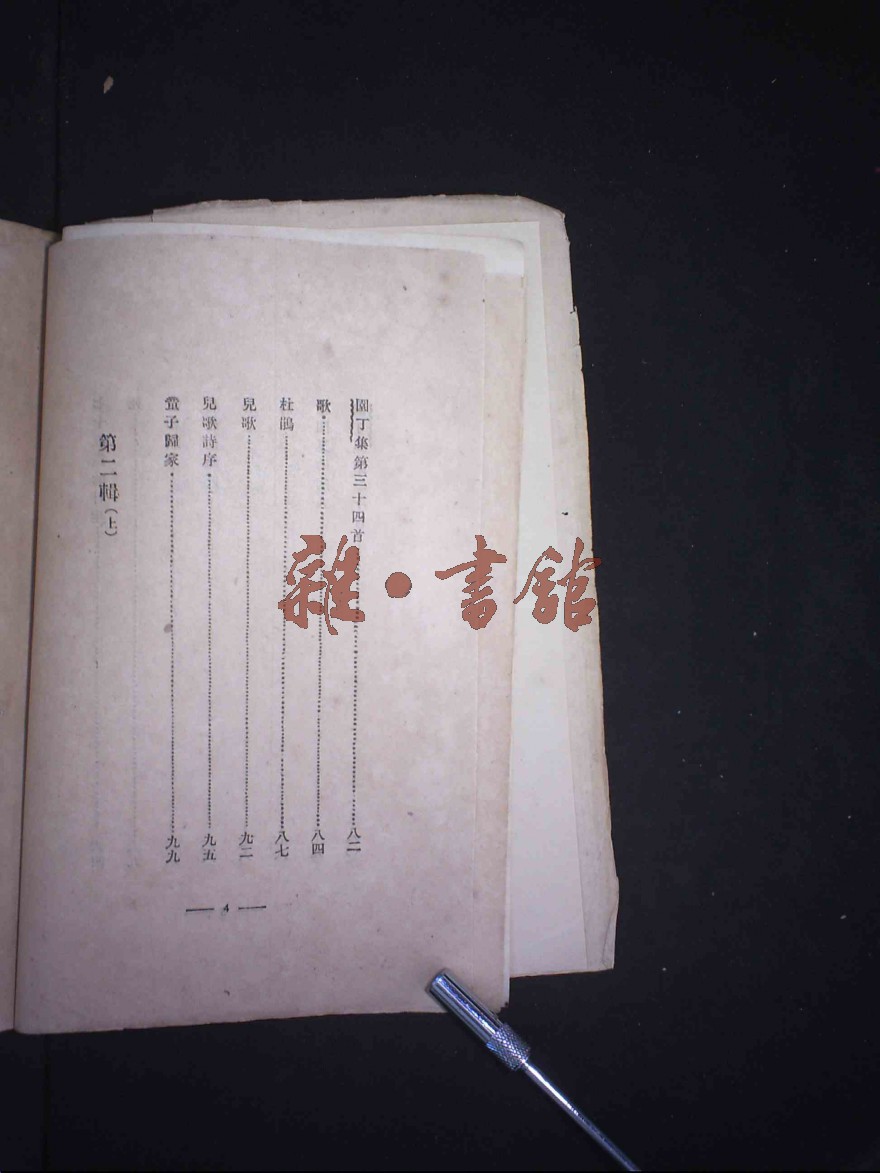 園丁集第三十四首……八二
歌……八四
杜鵑……八七
兒歌……九二
兒歌詩序……九五
蛩子歸家……九九
第二輯(上)
— 4 —
雜·書館